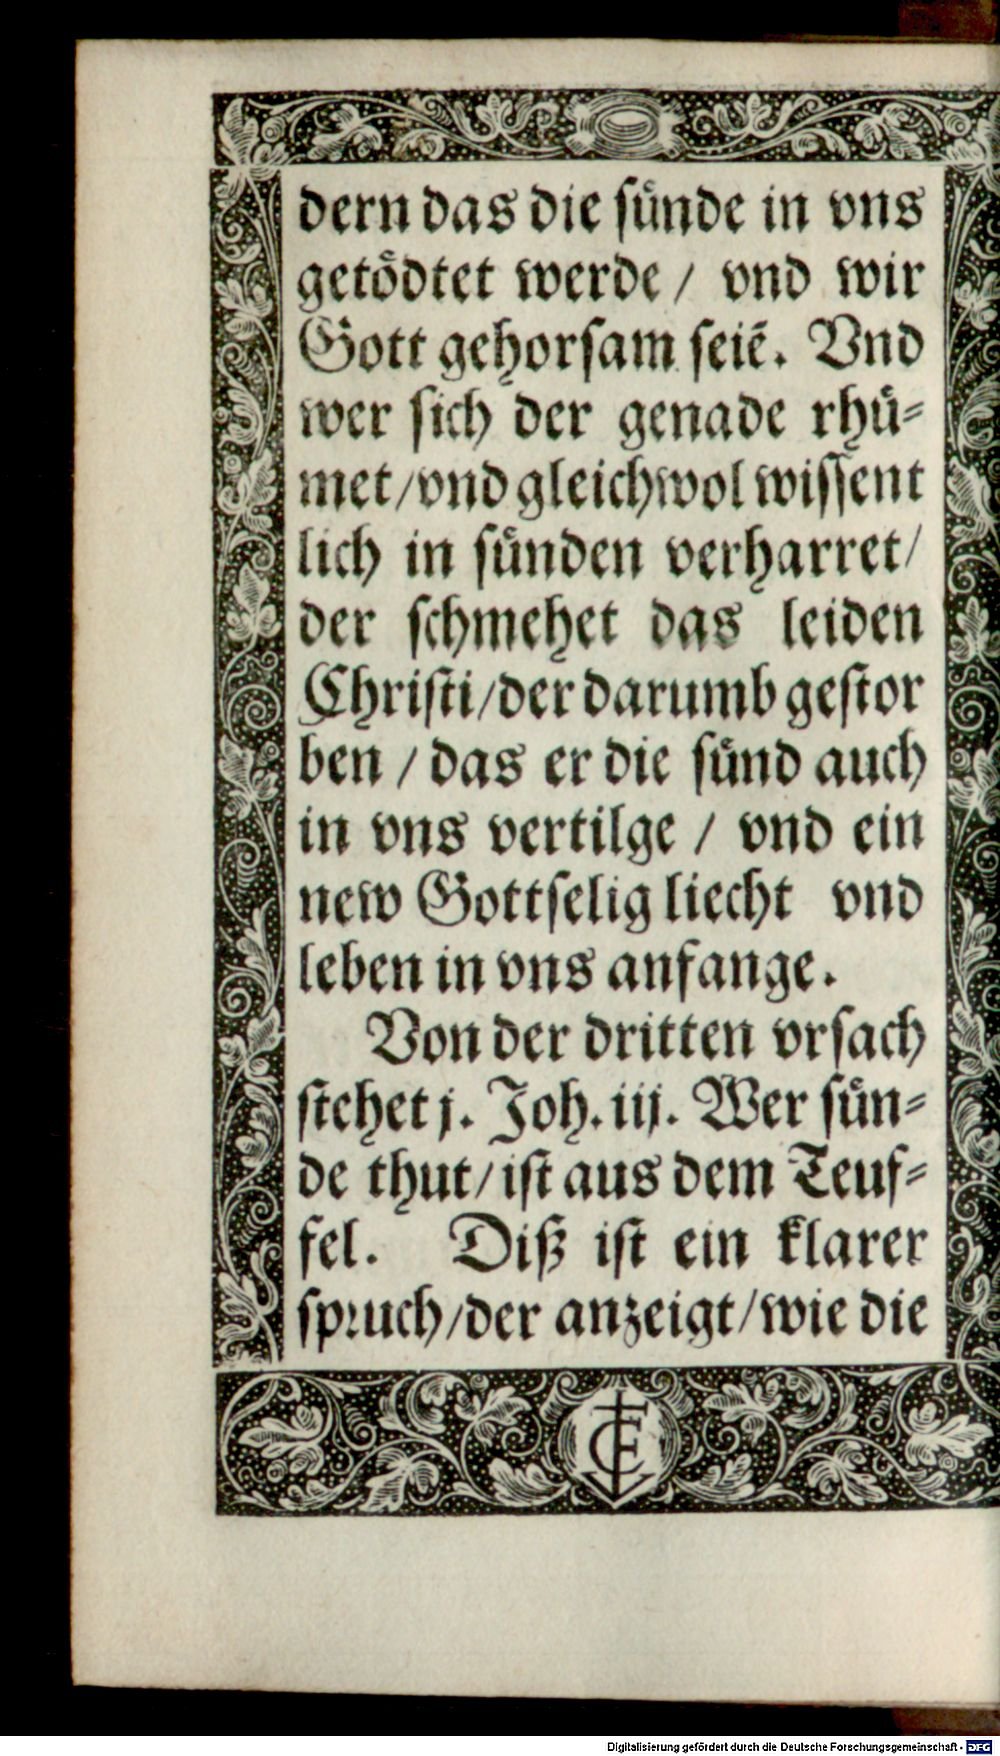 dern das die ſuͤnde in vns
getoͤdtet werde / vnd wir
Gott gehorſam ſeiẽ. Vnd
wer ſich der genade rhuͤ-
met/vnd gleichwol wiſſent
lich in ſuͤnden verharret/
der ſchmehet das leiden
Chriſti/der darumb geſtor
ben / das er die ſuͤnd auch
in vns vertilge / vnd ein
new Gottſelig liecht vnd
leben in vns anfange.
Von der dritten vrſach
ſtehet j. Joh. iij. Wer ſuͤn-
de thut/iſt aus dem Teuf-
fel. Diß iſt ein klarer
ſpꝛuch/der anzeigt/wie die
Digitalisierung gefördert durch die Deutsche Forschungsgemeinschaft - DFG